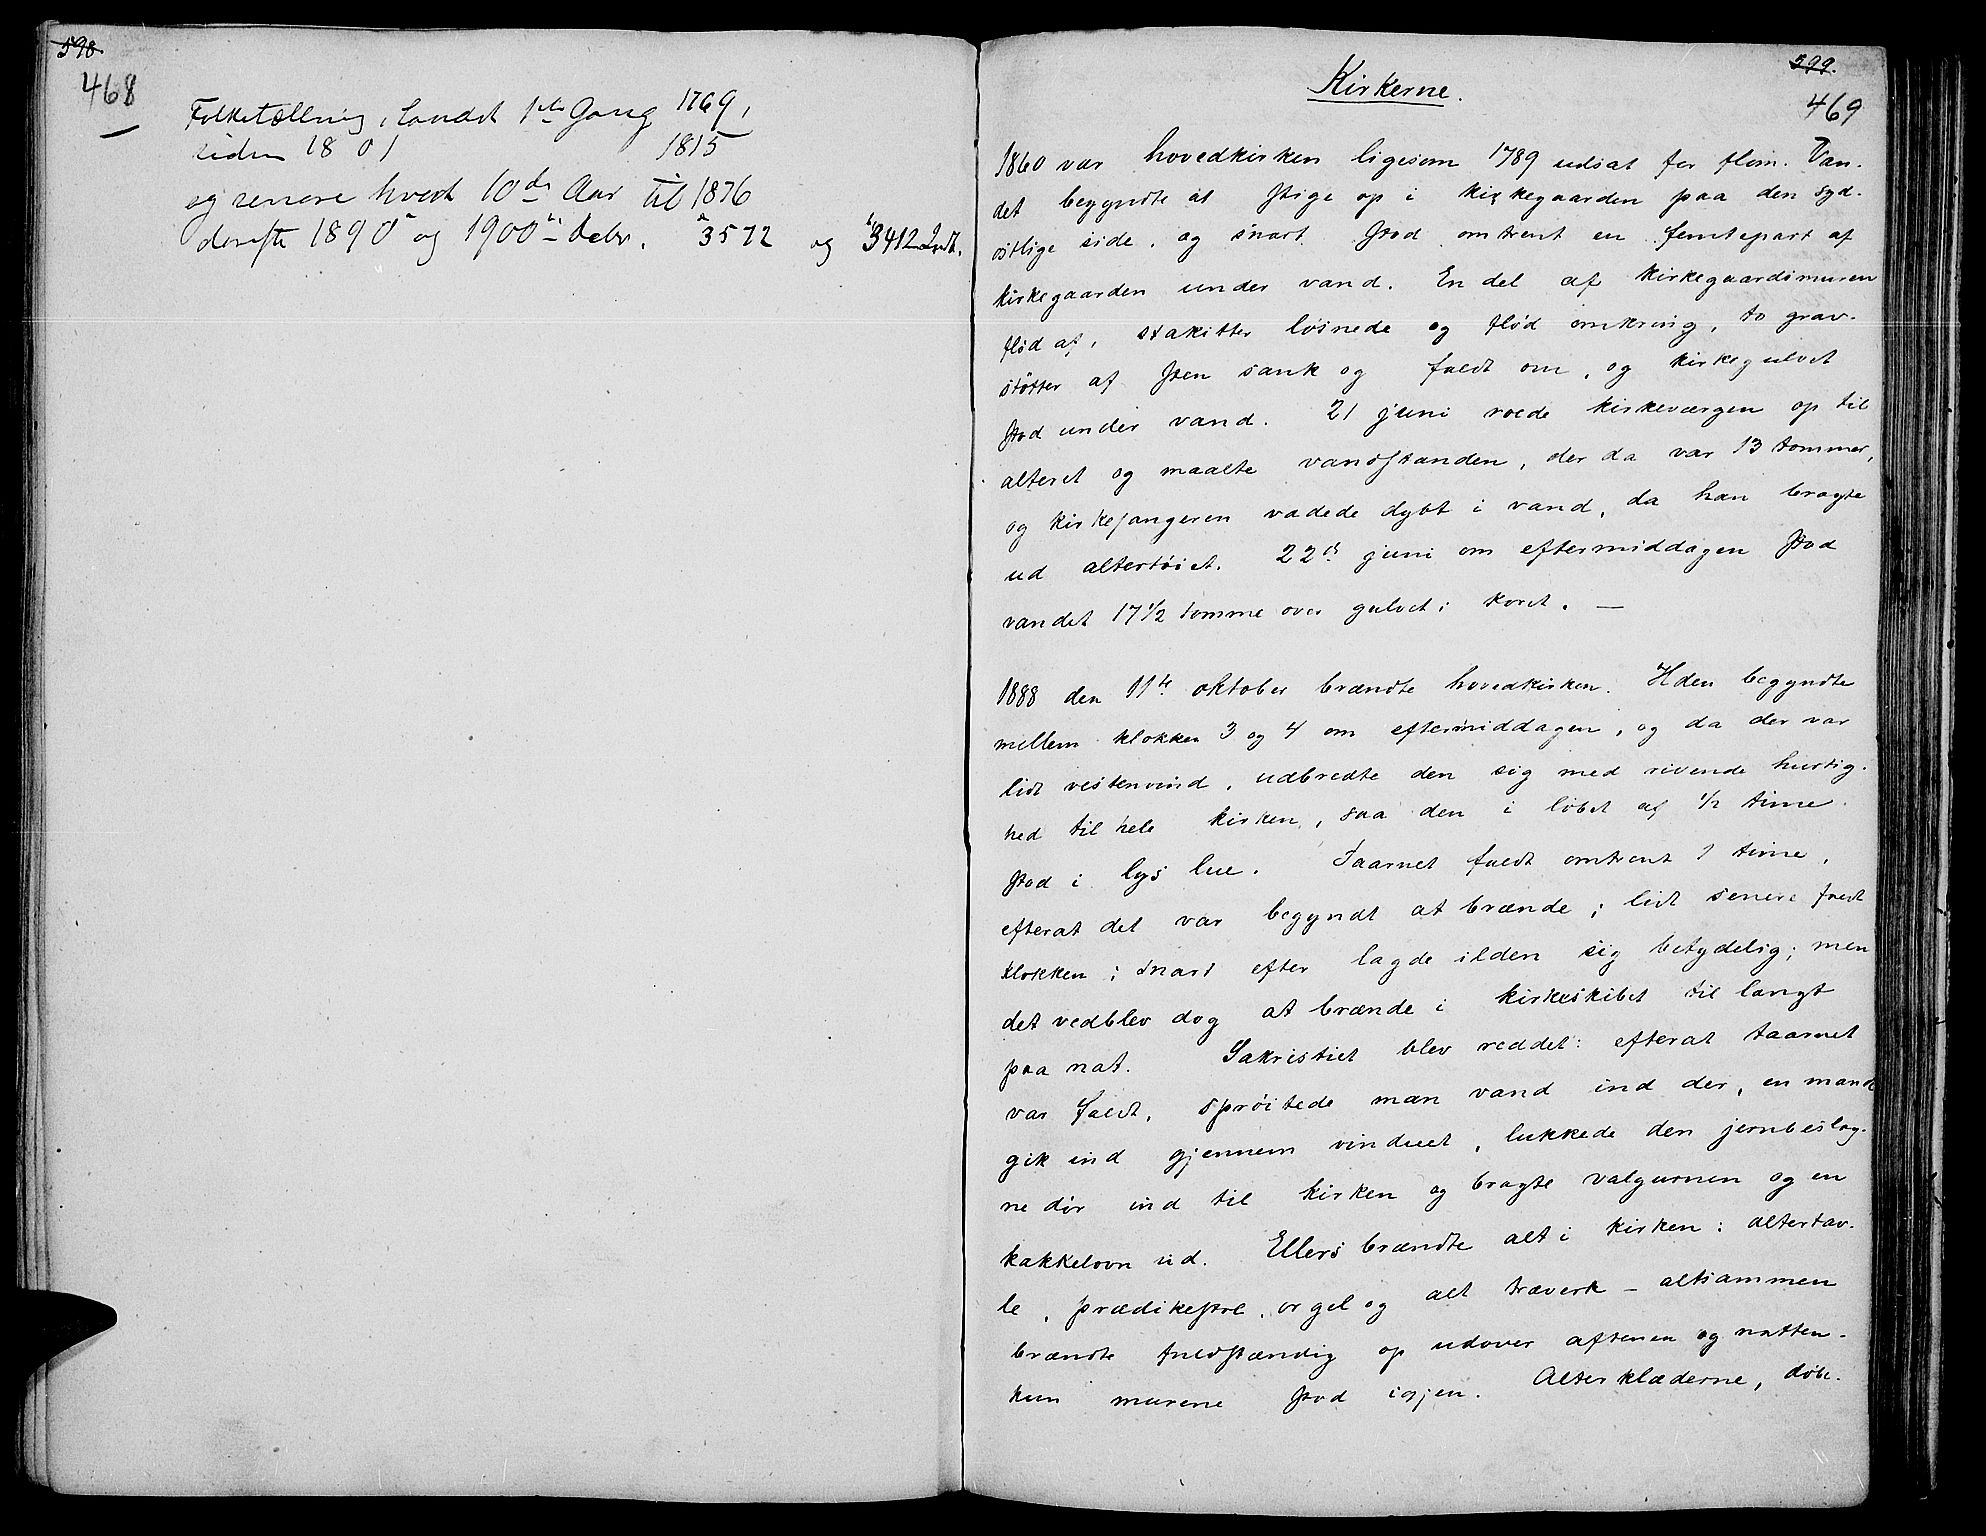 598.
468
Folketælling i Landet 1ste Gang 1769,
siden 1801 1815
og senere hvert 10de Aar til 1876
derefter 1890 og 1900 3572 og 3412 Indb.
599.
469
Kirkerne.
1860 var hovedkirken ligesom 1789 udsat for flom. Van-
det begyndte at stige op i kirkegaarden paa den syd-
østlige side, og snart stod omtrent en femtepart af
kirkegaarden under vand. En del af kirkegaardsmuren
flød af, stakitter løsnede og flød omkring, to grav-
støtter af sten sank og faldt om, og kirkegulvet
stod under vand. 21 juni roede kirkeværgen op til
alteret og maalte vandstanden, der da var 13 tommer,
og kirkesangeren vadede dybt i vand, da han bragte
ud altertøiet. 22de juni om eftermiddagen stod
vandet 17 1/2 tomme over gulvet i koret. —
1888 den 11te oktober brændte hovedkirken. Ilden begyndte
mellem klokken 3 og 4 om eftermiddagen, og da der var
lidt vestenvind, udbredte den sig med rivende hurtig-
hed til hele kirken, saa den i løbet af 1/2 time
stod i lys lue. Taarnet faldt omtrent 1 time,
efterat det var begyndt at brænde; lidt senere faldt
klokken; snart efter lagde ilden sig betydelig; men
det vedblev dog at brænde i kirkeskibet til langt
paa nat. Sakristiet blev reddet: efterat taarnet
var faldt, sprøitede man vand ind der, en mand
gik ind gjennem vinduet, lukkede den jernbeslag-
ne dør ind til kirken og bragte valgurnen og en
kakkelovn ud. Ellers brændte alt i kirken: altertav-
le, prædikestol, orgel og alt træverk – altsammen
brændte fuldstændig op udover aftenen og natten.
kun murene stod igjen. Alterklæderne, døbe-